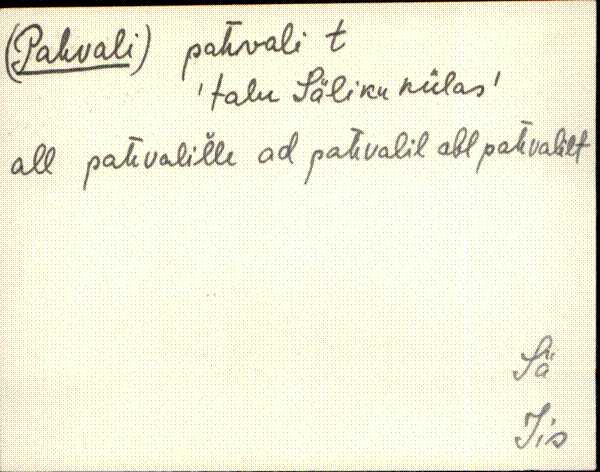 (Pahvali) pah̄vali t
'talu Säliku külas'
all pah̄valil̆le ad pah̄valil abl pah̄valilt
Sä
Iis